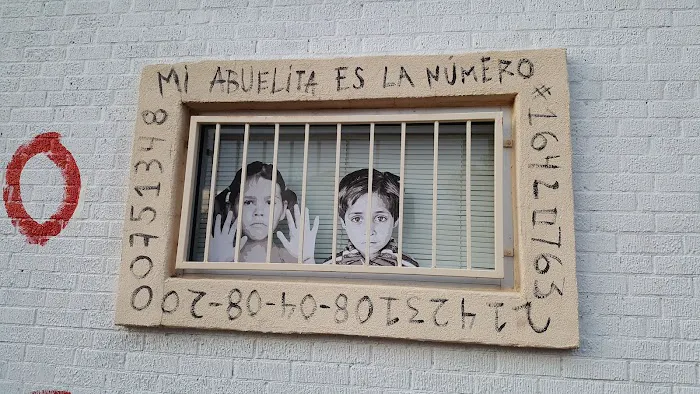 MI ABUELITA ES LA NÚMERO
21423108-04-08-20
00751348